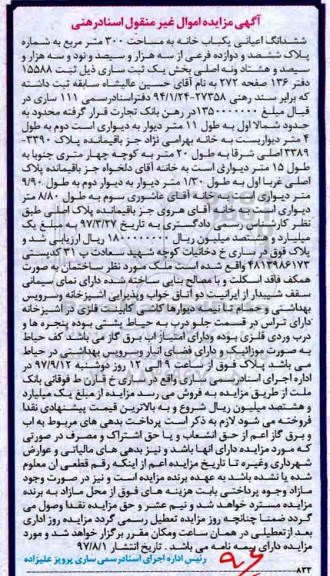 آگهی مزایده اموال غیر منقول اسناد رهنی
ششدانگ اعیانی یکباب خانه به مساحت ۳۰۰ متر مربع به شماره
پلاک ششصد و دوازده فرعی از سه هزار و سیصد و نود و سه هزار و
سیصد و هشتاد ونه اصلی بخش یک ثبت ساری ذیل ثبت ۱۵۵۸۸
دفتر ۱۳۶ صفحه ۲۷۲ به نام آقای حسین عالیشاه سابقه ثبت داشته
که برابر سند رهنی ۲۷۳۵۸-۹۴/۱/۲۴ دفتراسنادرسمی ۱۱۱ ساری در
قبال مبلغ ۱۳۵۰۰۰۰۰۰۰ در رهن بانک تجارت قرار گرفته محدود به
حدود شمالا اول به طول ۱۱ متر دیوار به دیواری است دوم به طول
۴ متر دیواریست به خانه بهرامی نژاد جز باقیمانده پلاک ۳۳۹۰-
۳۳۸۹ اصلی شرقا به طول ۲۰ متر به کوچه چهار متری جنوبا به
طول ۱۵ متر دیواری است به خانه آقای دلخواه جز باقیمانده پلاک
اصلی غربا اول به طول ۱/۳۰ متر دیوار به دیوار دوم به طول ۹/۹۰
متر دیواری است به خانه آقای عاشوری سوم به طول ۸/۸۰ متر
دیواری است به خانه آقای هروی جز باقیمانده پلاک اصلی طبق
نظر کارشناس رسمی دادگستری به تاریخ ۹۷/۳/۲۷ به مبلغ یک
میلیارد و هشتصد میلیون ریال ۱۸۰۰۰۰۰۰۰۰ ریال ارزیابی شد و
پلاک فوق در ساری خ دخانیات کوچه شهید سعادت پ ۳۱ کدپستی
۴۸۱۳۹۸۶۱۷۳ واقع شده است ملک مورد نظر ساختمان به صورت
همکف فاقد اسکلت و با مصالح بنایی ساخته شده دارای نمای سیمانی
سقف شیبدار از ایرانیت دو اتاق خواب وپذیرایی آشپزخانه وسرویس
بهداشتی و حمام با نیمه دیوارها کاشی کابینت فلزی در آشپزخانه
دارای تراس در قسمت جلو درب به حیاط پشتی بوده پنجره ها و
درب وردی فلزی بوده ودارای امتیاز آب برق گاز می باشد کف حیاط
به صورت موزائیک و دارای فضای انبار وسرویس بهداشتی در حیاط
می باشد پلاک فوق از ساعت ۹ الی ۱۲ روز دوشنبه ۹۷/۹/۱۲ در
اداره اجرای اسنادرسمی ساری واقع در ساری خ قارن ط فوقانی بانک
ملت از طریق مزایده به فروش می رسد مزایده از مبلغ یک میلیارد
و هشتصد میلیون ریال شروع و به بالاترین قیمت پیشنهادی نقدا
فروخته می شود لازم به ذکر است پرداخت بدهی های مربوط به آب
و برق گاز اعم از حق انشعاب و یا حق اشتراک و مصرف در صورتی
که مورد مزایده دارای آنها باشد و نیز بدهی های مالیاتی و عوارض
شهرداری وغیره تا تاریخ مزایده اعم از اینکه رقم قطعی آن معلوم
شده یا نشده باشد به عهده برنده مزایده است و نیز در صورت وجود
مازاد وجوه پرداختی بابت هزینه های فوق از محل مازاد به برنده
مزایده مسترد خواهد شد و نیم عشر و حق مزایده نقدا وصول می
گردد ضمنا چنانچه روز مزایده تعطیل رسمی گردد مزایده روز اداری
بعد ازتعطیلی در همان ساعت ومکان مقرر برگزار خواهد شد و مورد
مزایده دارای بیمه نامه می باشد . تاریخ انتشار ۹۷/۸/۱
رئیس اداره اجرای اسنادرسمی ساری پرویز علیزاده
۸۳۲